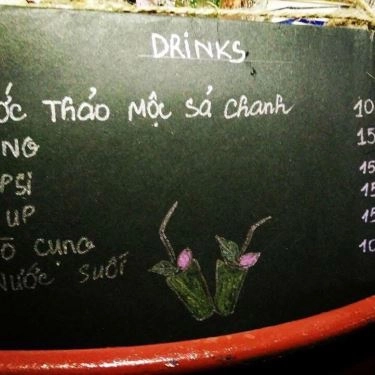 DRINKS
ỚC THẢO MỘC SẢ CHANH 10
NG 15
PSI 15
UP 15
Õ CỤNG 15
NƯỚC SUỐI 10